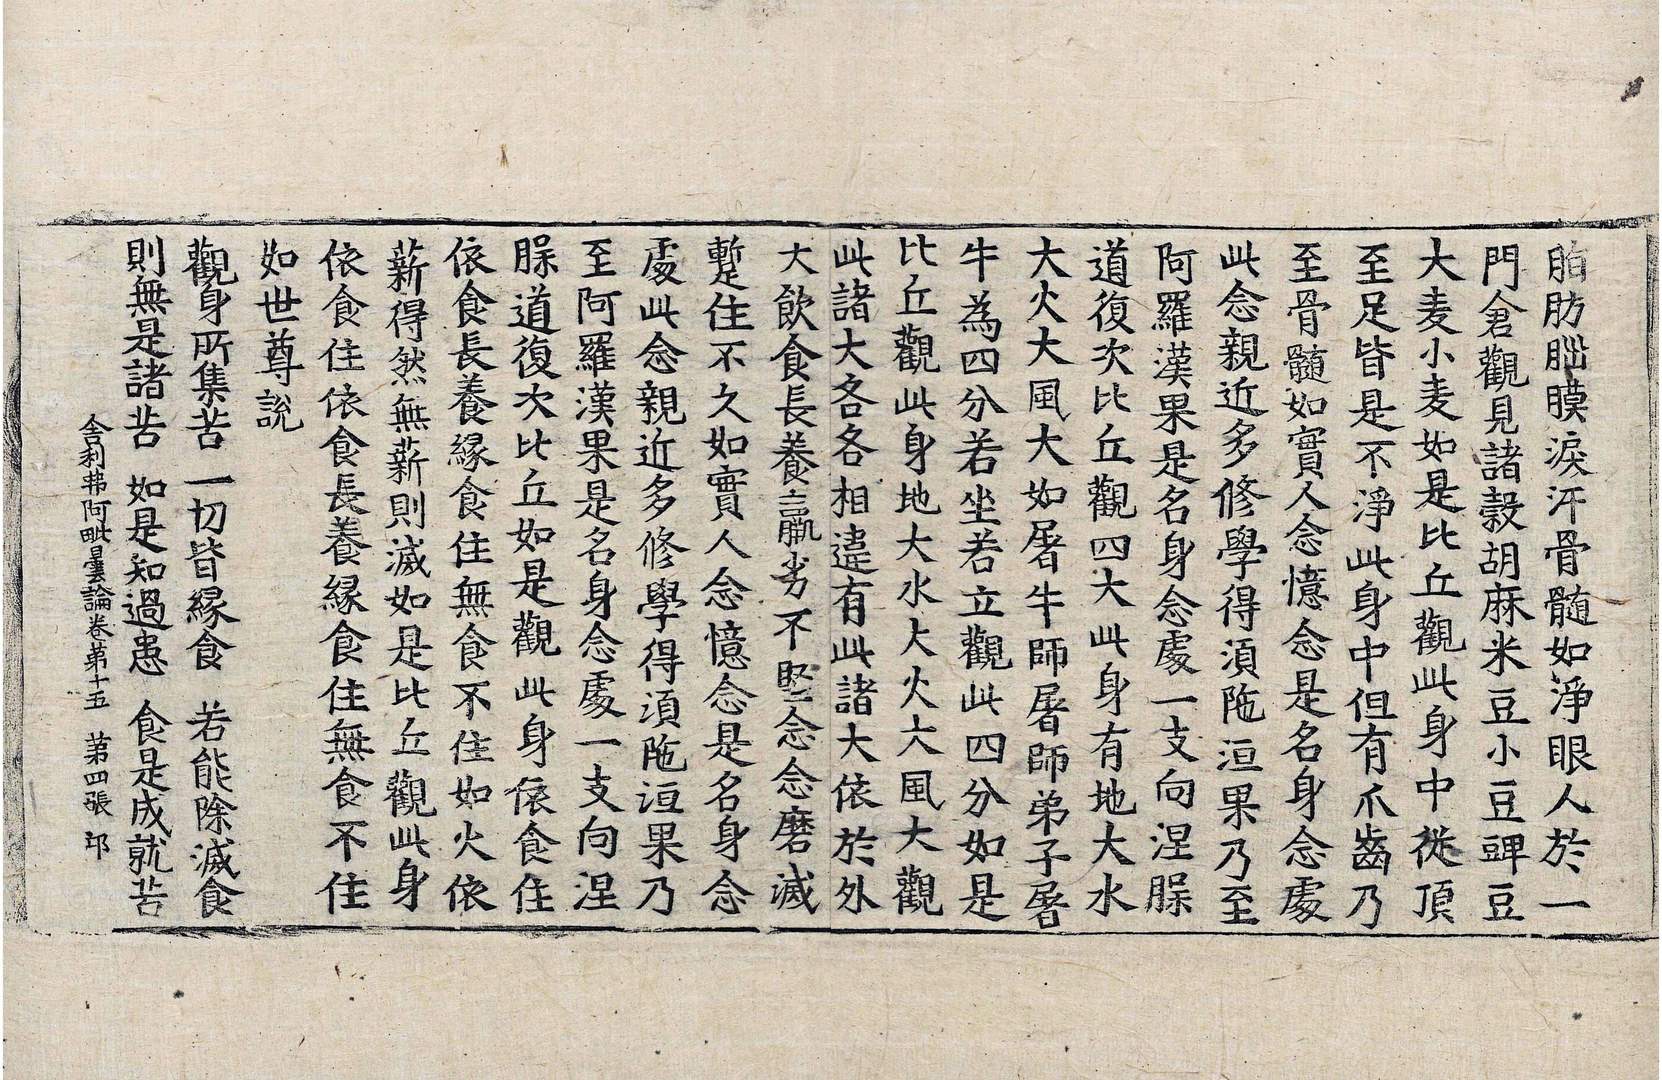 肪𦙽膜淚汗骨髓如淨眼人於一
門倉觀見諸穀胡麻米豆小豆豍豆
大麦小麦如是比丘觀此身中從頂
至足皆是不淨此身中但有爪齒乃
至骨髓如實人念憶念是名身念處
此念親近多修學得須陁洹果乃至
阿羅漢果是名身念處一支向涅䏶
道復次比丘觀四大此身有地大水
大火大風大如屠牛師屠師弟子屠
牛為四分若坐若立觀此四分如是
比丘觀此身地大水大火大風大觀
此諸大各各相違有此諸大依於外
大飲食長養羸劣不堅念念磨滅
蹔住不久如實人念憶念是名身念
處此念親近多修學得須陁洹果乃
至阿羅漢果是名身念處一支向涅
䏶道復次比丘如是觀此身依食住
依食長養縁食住無食不住如火依
薪得然無薪則滅如是比丘觀此身
依食住依食長養縁食住無食不住
如世尊說
觀身所集苦 一切皆縁食 若能除滅食
則無是諸苦 如是知過患 食是成就苦
舍利弗阿毗曇論卷第十五 第四張 邛